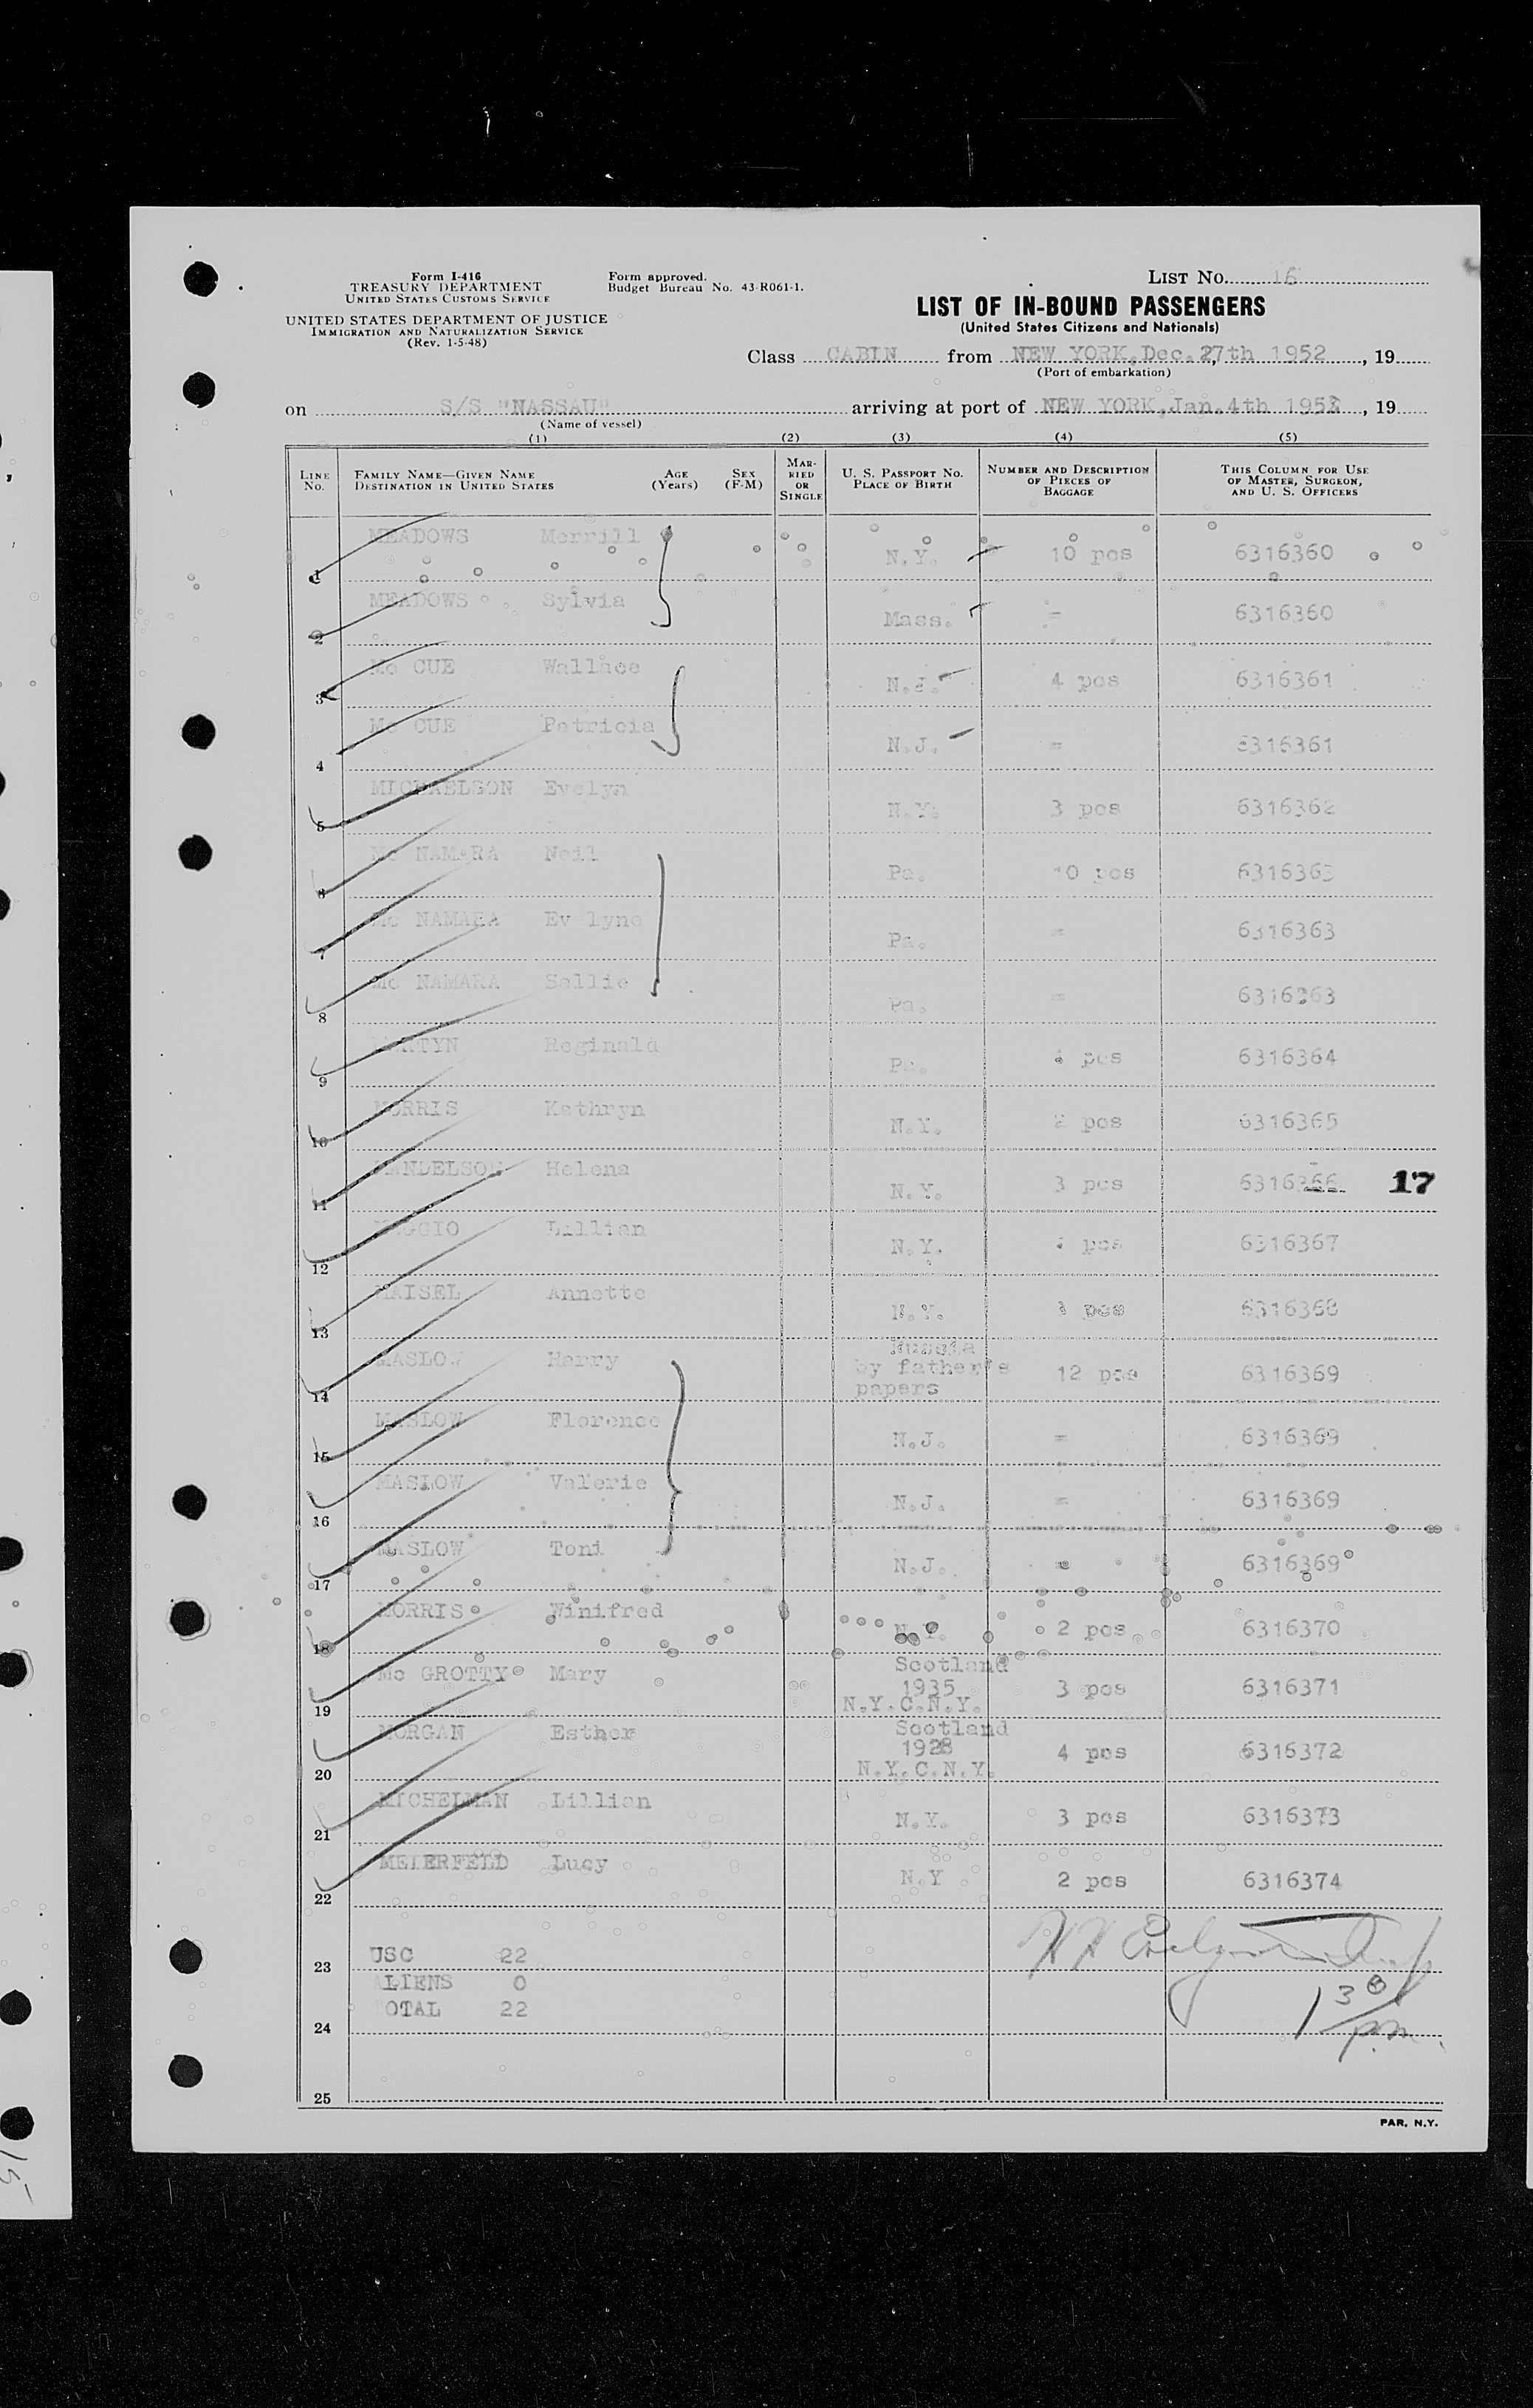 Form I-416
TREASURY DEPARTMENT
UNITED STATES CUSTOMS SERVICE
UNITED STATES DEPARTMENT OF JUSTICE
IMMIGRATION AND NATURALIZATION SERVICE
(Rev. 1-5-48)
Form approved.
Budget Bureau No. 43-R061-1.
LIST NO. 16
LIST OF IN-BOUND PASSENGERS
(United States Citizens and Nationals)
Class CABIN from NEW YORK, Dec. 27th 1952, 19
(Port of embarkation)
on S/S "NASSAU" arriving at port of NEW YORK, Jan. 4th 195, 19
(Name of vessel)
(1) (2) (3) (4) (5)
LINE NO. FAMILY NAME—GIVEN NAME DESTINATION IN UNITED STATES AGE (Years) SEX (F-M) MARRIED OR SINGLE U. S. PASSPORT NO. PLACE OF BIRTH NUMBER AND DESCRIPTION OF PIECES OF BAGGAGE THIS COLUMN FOR USE OF MASTER, SURGEON, AND U. S. OFFICERS
1 MEADOWS Merrill N.Y. 10 pcs 6316360
2 MEADOWS Sylvia Mass. = 6316360
3 Mc CUE Wallace N.J. 4 pcs 6316361
4 Mc CUE Patricia N.J. = 6316361
5 MICHAELSON Evelyn N.Y. 3 pcs 6316362
6 Mc NAMARA Neil Pa. 10 pcs 6316363
7 Mc NAMARA Ev lyne Pa. = 6316363
8 Mc NAMARA Sallie Pa. = 6316363
9 MARTYN Reginald Pa. pcs 6316364
10 MORRIS Kathryn N.Y. 2 pcs 6316365
11 MANDELSON Helena N.Y. 3 pcs 6316366 17
12 MAGGIO Lillian N.Y. pcs 6316367
13 MAISEL Annette N.Y. pcs 6316368
14 MASLOW Harry Russia by father's papers 12 pcs 6316369
15 MASLOW Florence N.J. = 6316369
16 MASLOW Valerie N.J. = 6316369
17 MASLOW Toni N.J. = 6316369
18 MORRIS Winifred N.Y. 2 pcs 6316370
19 Mc GROTTY Mary Scotland 1935 N.Y.C.N.Y. 3 pcs 6316371
20 MORGAN Esther Scotland 1928 N.Y.C.N.Y. 4 pcs 6316372
21 MICHELMAN Lillian N.Y. 3 pcs 6316373
22 MEIERFELD Lucy N.Y 2 pcs 6316374
23 USC 22
ALIENS 0
24 TOTAL 22
1 30/pm.
25
PAR. N.Y.
15